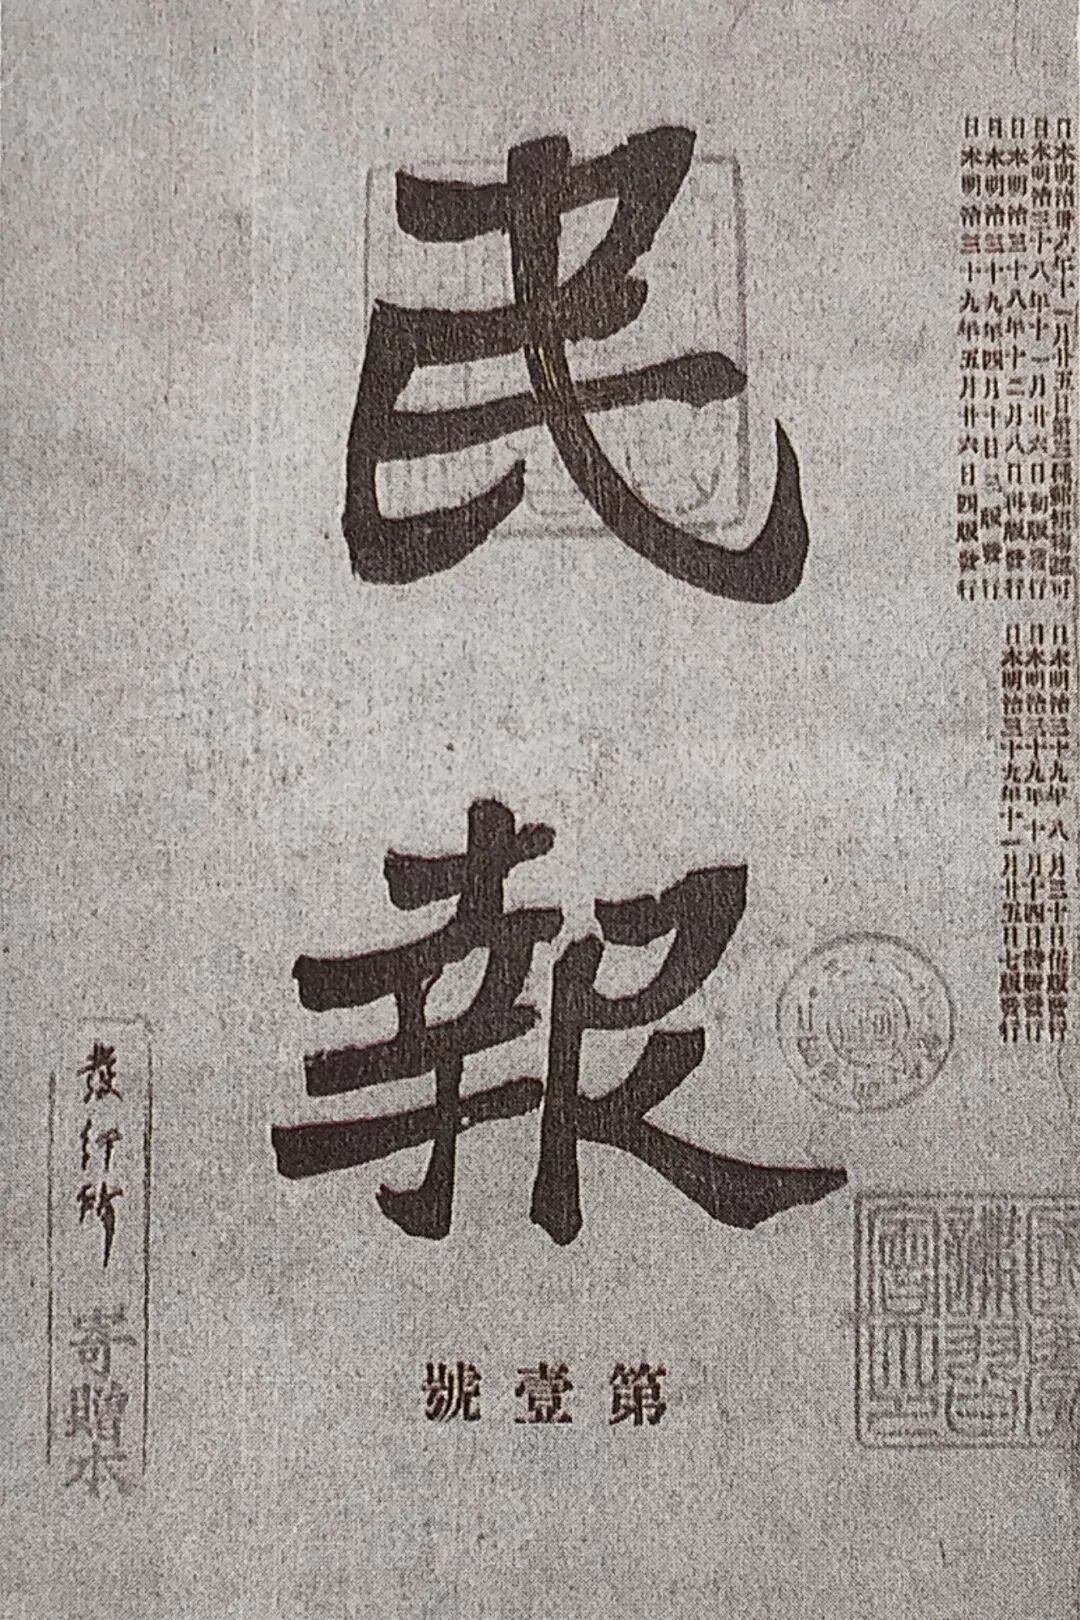 日本明治卅八年十一月廿五日第三種郵便物認可
日本明治三十八年十一月廿六日初版發行
日本明治三十八年十二月八日再版發行
日本明治三十九年四月十日三版發行
日本明治三十九年五月廿六日四版發行
日本明治三十九年八月三十日伍版發行
日本明治三十九年十月十四日陸版發行
日本明治三十九年十一月廿五日七版發行
民報
第壹號
發行所
寄贈本